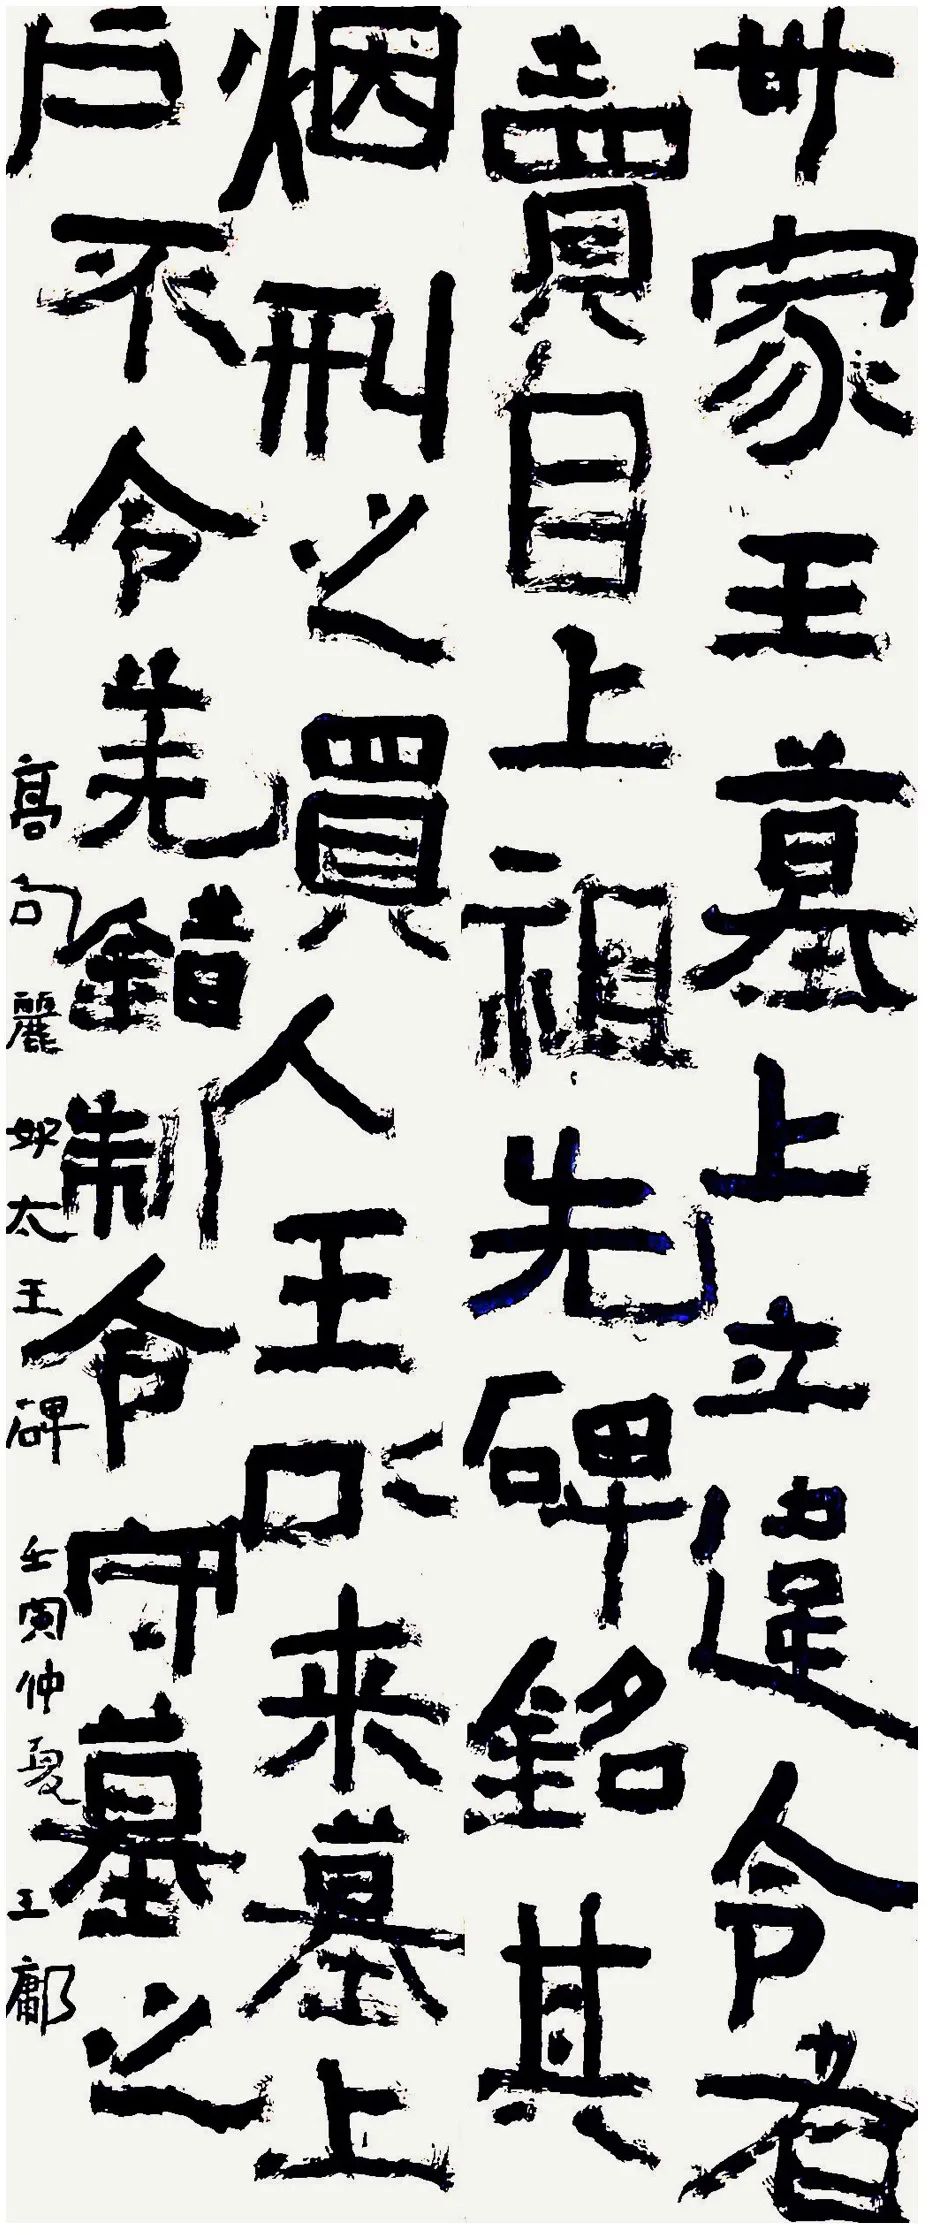 卅家王墓上立違令者
賣自上祖先碑銘其
烟刑之買人王以来墓上
户不令羌錯制令守墓之
高句麗好太王碑 壬寅仲夏 王鄘